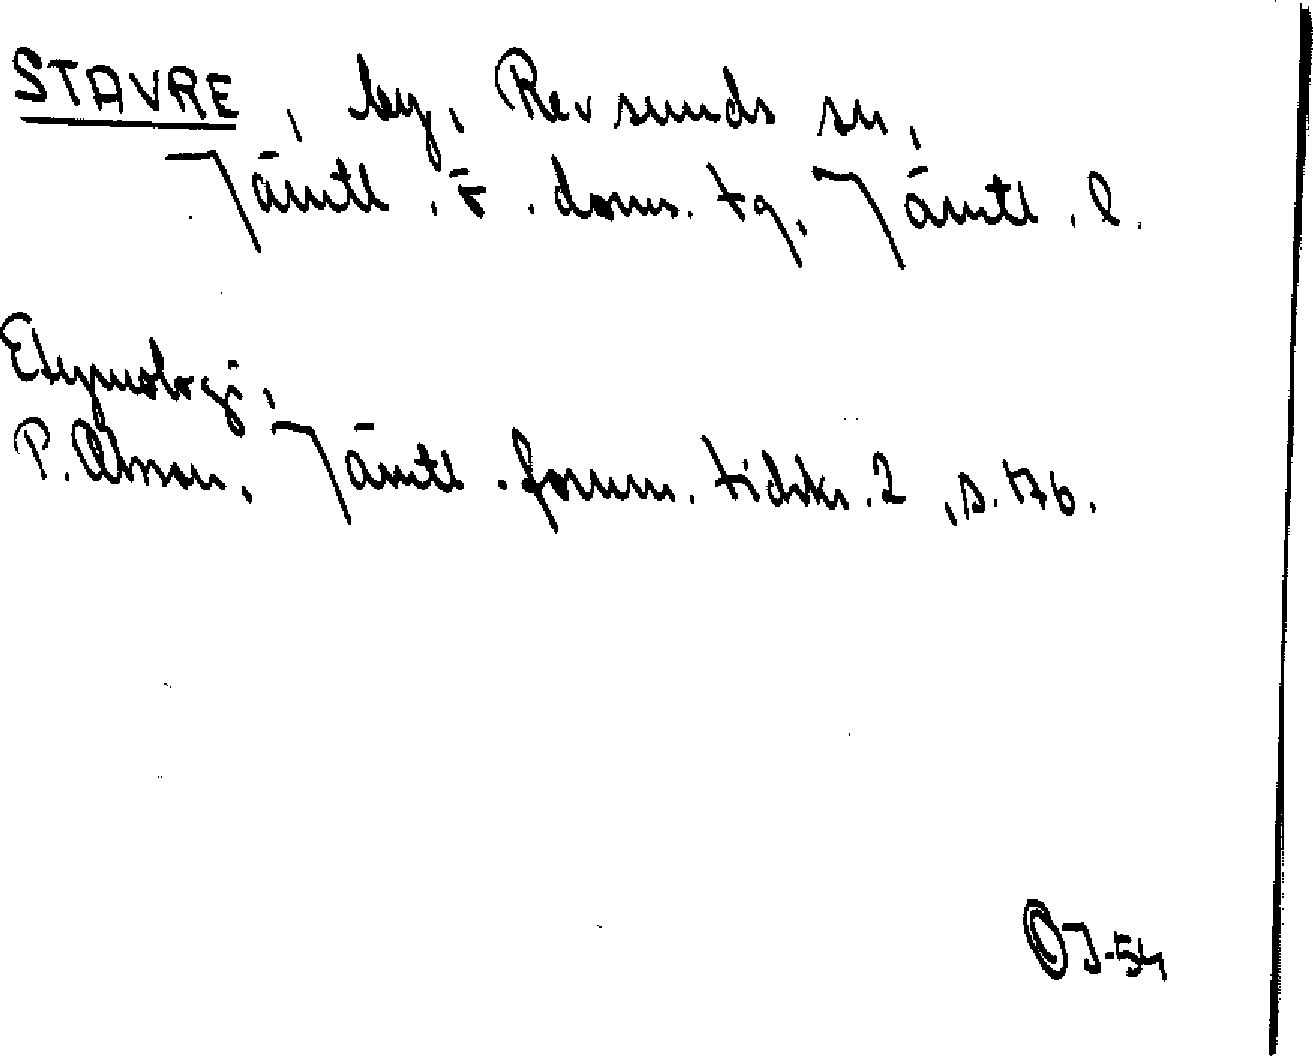 STAVRE, by, Revsunds sn,
Jämtl. ö. doms. tg, Jämtl. l.
Etymologi,
P. Olsson, Jämtl. fornm. tidskr. 2, s. 176.
OJ-54